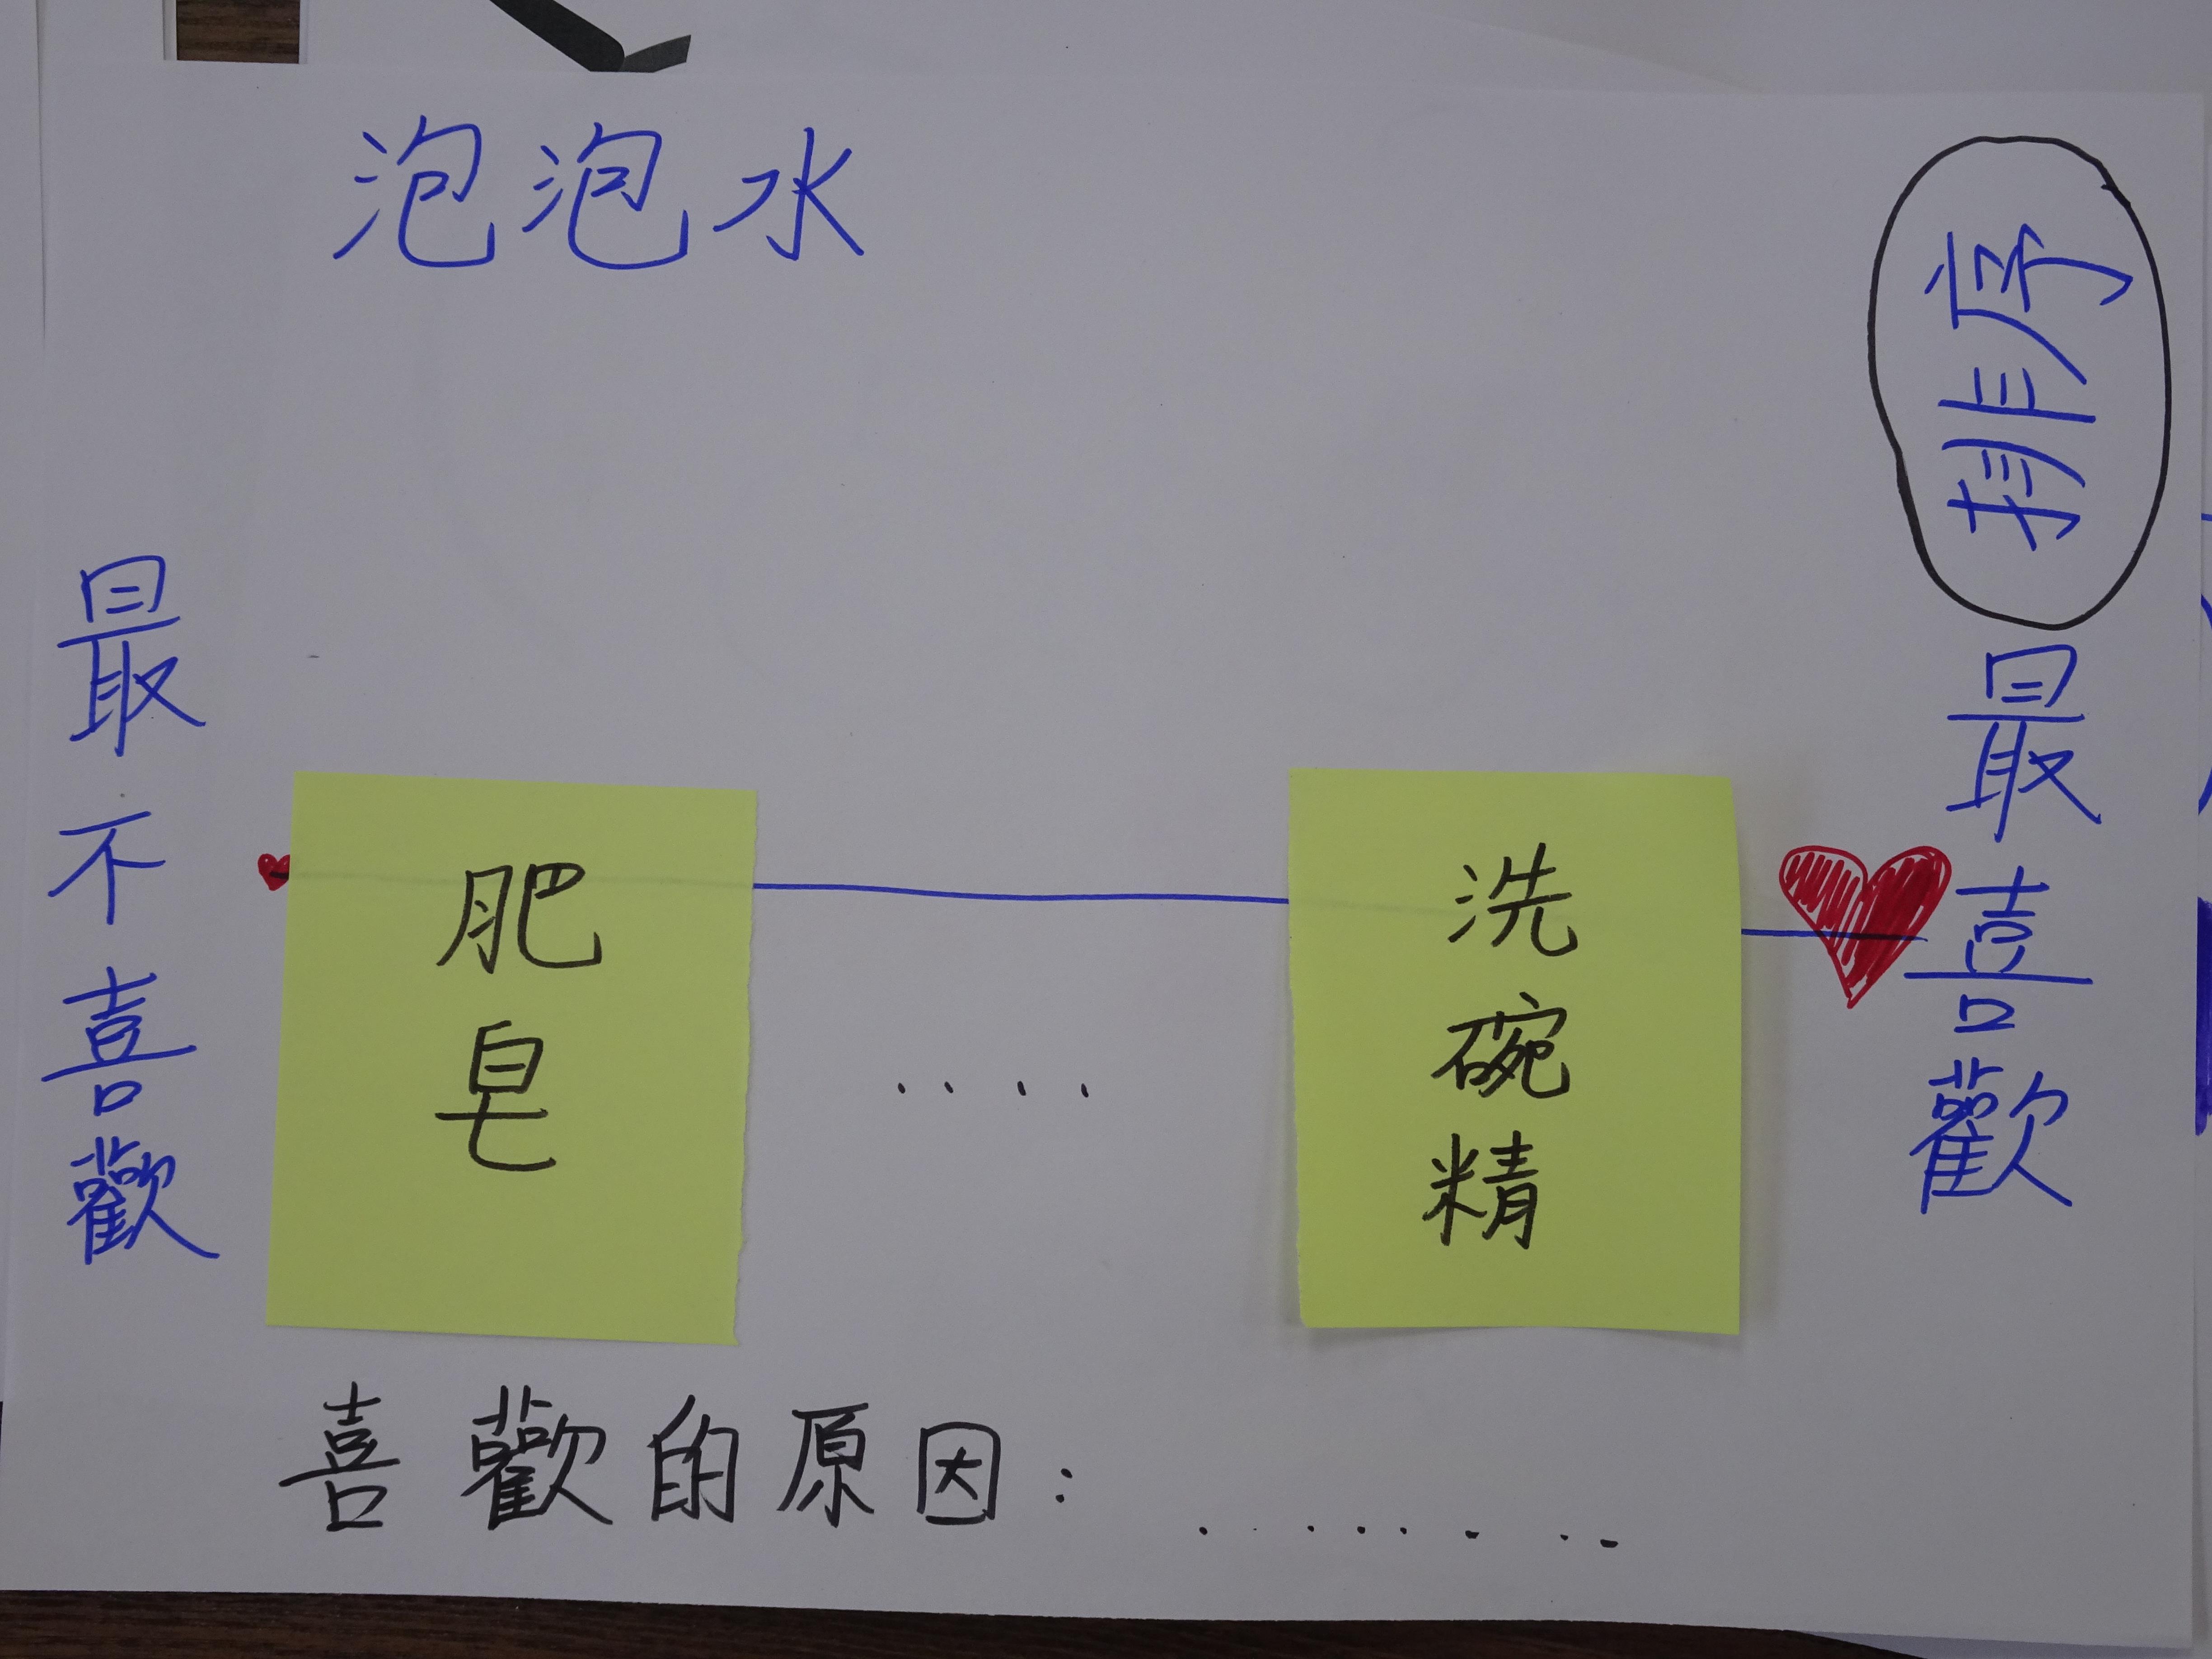 泡泡水
排序
最不喜歡
肥皂
....
洗碗精
最喜歡
喜歡的原因：........